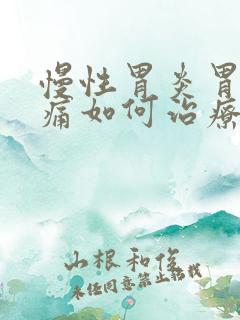 慢性胃炎胃
痛如何治療
山根和俊
未经同意禁止转载